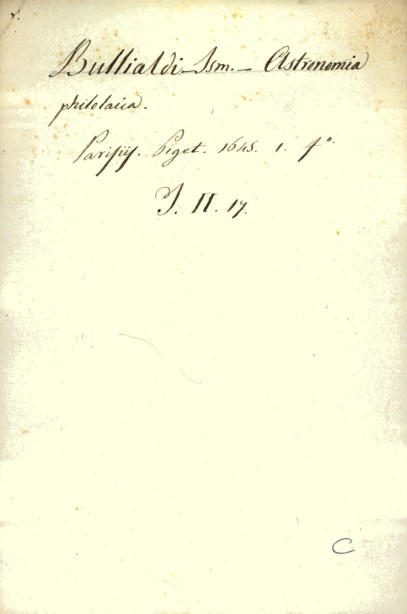 Bullialdi Ism. – Astronomia
philolaica.
Parisiis. Piget. 1645. 1. fº.
I. II. 17.
C